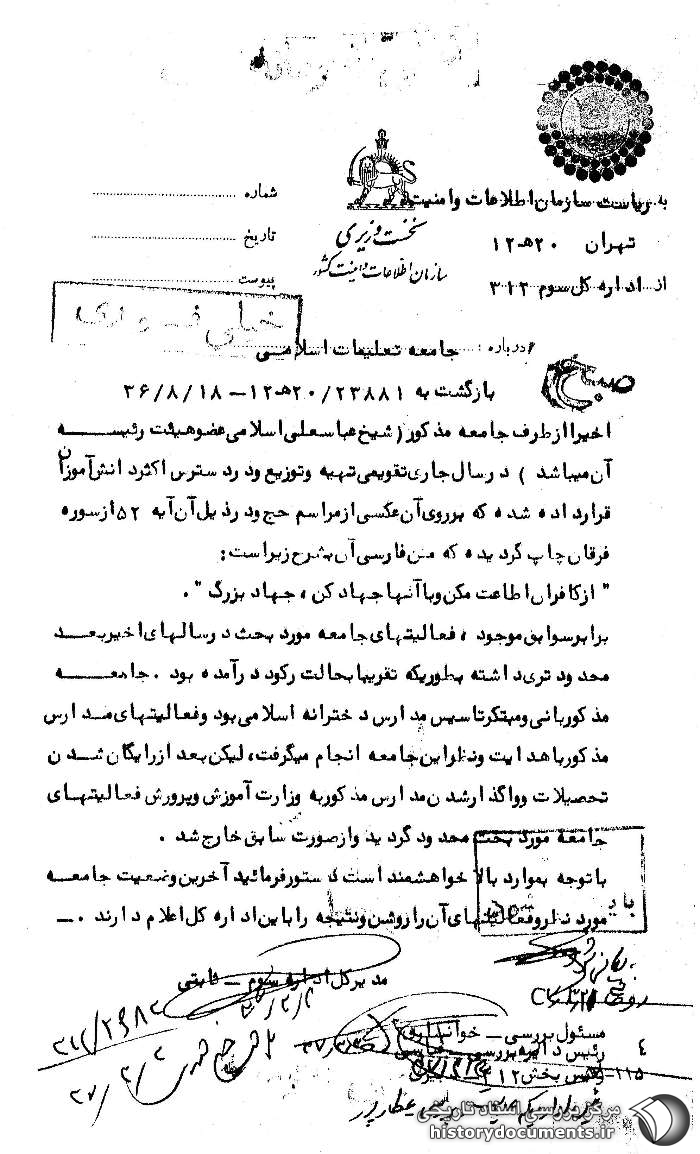 به ریاست سازمان اطلاعات و امنیت
تهران ۲۰ هـ ۱۲
از اداره کل سوم ۳۱۲
نخست وزیری
سازمان اطلاعات و امنیت کشور
شماره
تاریخ
پیوست
خیلی فوری
درباره : جامعه تعلیمات اسلامی
بازگشت به ۲۳۸۸۱/ ۲۰هـ۱۲ – ۳۶/۸/۱۸
اخیرا از طرف جامعه مذکور ( شیخ عباسعلی اسلامی عضو هیئت رئیسه
آن میباشد ) در سال جاری تقویمی تهیه و توزیع و در دسترس اکثر دانش آموزان
قرار داده شده که بر روی آن عکسی از مراسم حج و در ذیل آن آیه ۵۲ از سوره
فرقان چاپ گردیده که متن فارسی آن بشرح زیر است :
" از کافران اطاعت مکن و با آنها جهاد کن ، جهاد بزرگ " .
برابر سوابق موجود ، فعالیتهای جامعه مورد بحث در سالهای اخیر بعد
محدود تری داشته بطوریکه تقریبا بحالت رکود در آمده بود . جامعه
مذکور بانی و مبتکر تاسیس مدارس دخترانه اسلامی بود و فعالیتهای مدارس
مذکور با هدایت و نظر این جامعه انجام میگرفت ، لیکن بعد از رایگان شدن
تحصیلات و واگذار شدن مدارس مذکور به وزارت آموزش و پرورش فعالیتهای
جامعه مورد بحث محدود گردید و از صورت سابق خارج شد .
با توجه بموارد بالا خواهشمند است دستور فرمائید آخرین وضعیت جامعه
مورد نظر و فعالیتهای آن را روشن و نتیجه را باین اداره کل اعلام دارند . –
مدیر کل اداره سوم – ثابتی
مسئول بررسی –
رئیس دایره بررسی –
رئیس بخش ۳۱۲ –
۳۷/۲/۲
مرکز بررسی اسناد تاریخی
historydocuments.ir